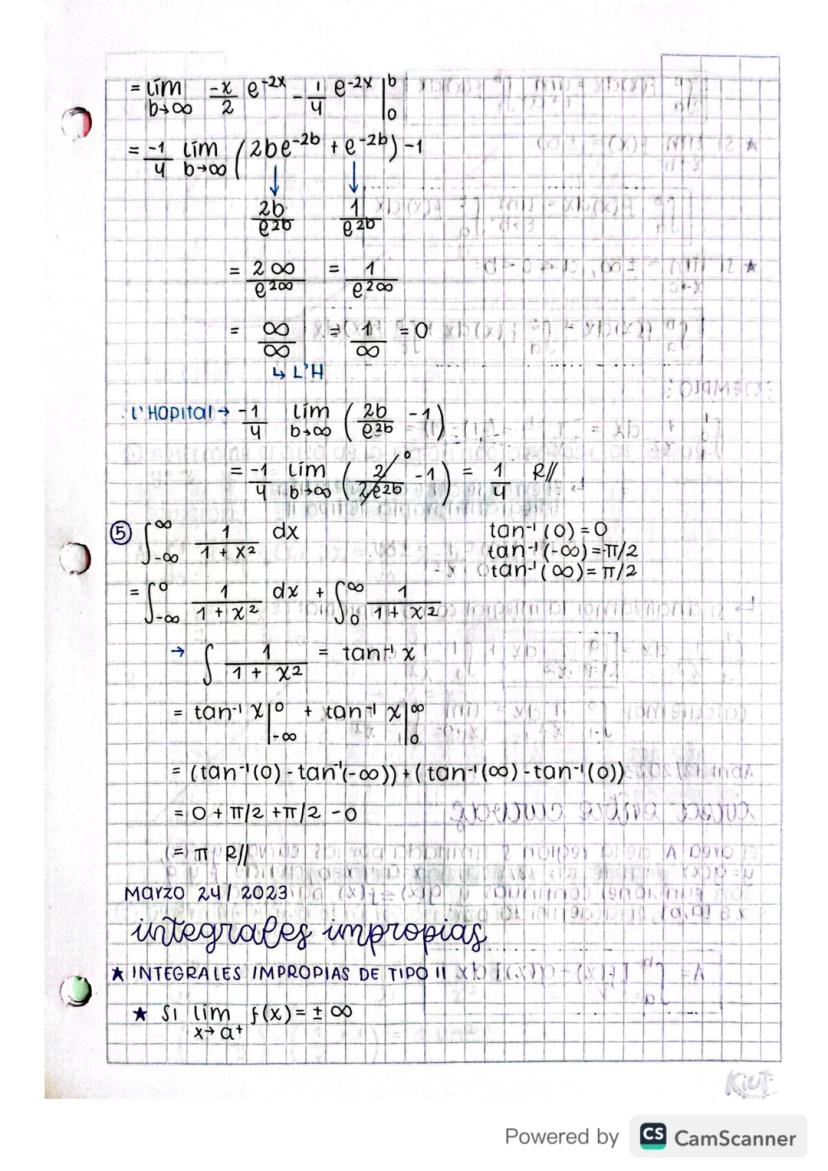 = lím -x/2 e^-2x - 1/4 e^-2x |b
b→∞ 0
= -1/4 lím (2be^-2b + e^-2b) - 1
b→∞
2b/e^2b 1/e^2b
= 2∞/e^2∞ = 1/e^2∞
= ∞/∞ = 1/∞ = 0
↳ L'H
L'Hopital → -1/4 lím (2b/e^2b - 1)
b→∞
= -1/4 lím (2/2e^2b - 1) = 1/4 R//
b→∞ 0
⑤ ∫_-∞^∞ 1/(1 + x²) dx
tan⁻¹(0) = 0
tan⁻¹(-∞) = -π/2
tan⁻¹(∞) = π/2
= ∫_-∞^0 1/(1 + x²) dx + ∫_0^∞ 1/(1 + x²)
→ ∫ 1/(1 + x²) = tan⁻¹ x
= tan⁻¹ x |_-∞^0 + tan⁻¹ x |_0^∞
= (tan⁻¹(0) - tan⁻¹(-∞)) + (tan⁻¹(∞) - tan⁻¹(0))
= 0 + π/2 + π/2 - 0
= π R//
Marzo 24/2023
integrales impropias
★ INTEGRALES IMPROPIAS DE TIPO II
★ SI lím f(x) = ± ∞
x→a⁺
Kiut
Powered by CS CamScanner